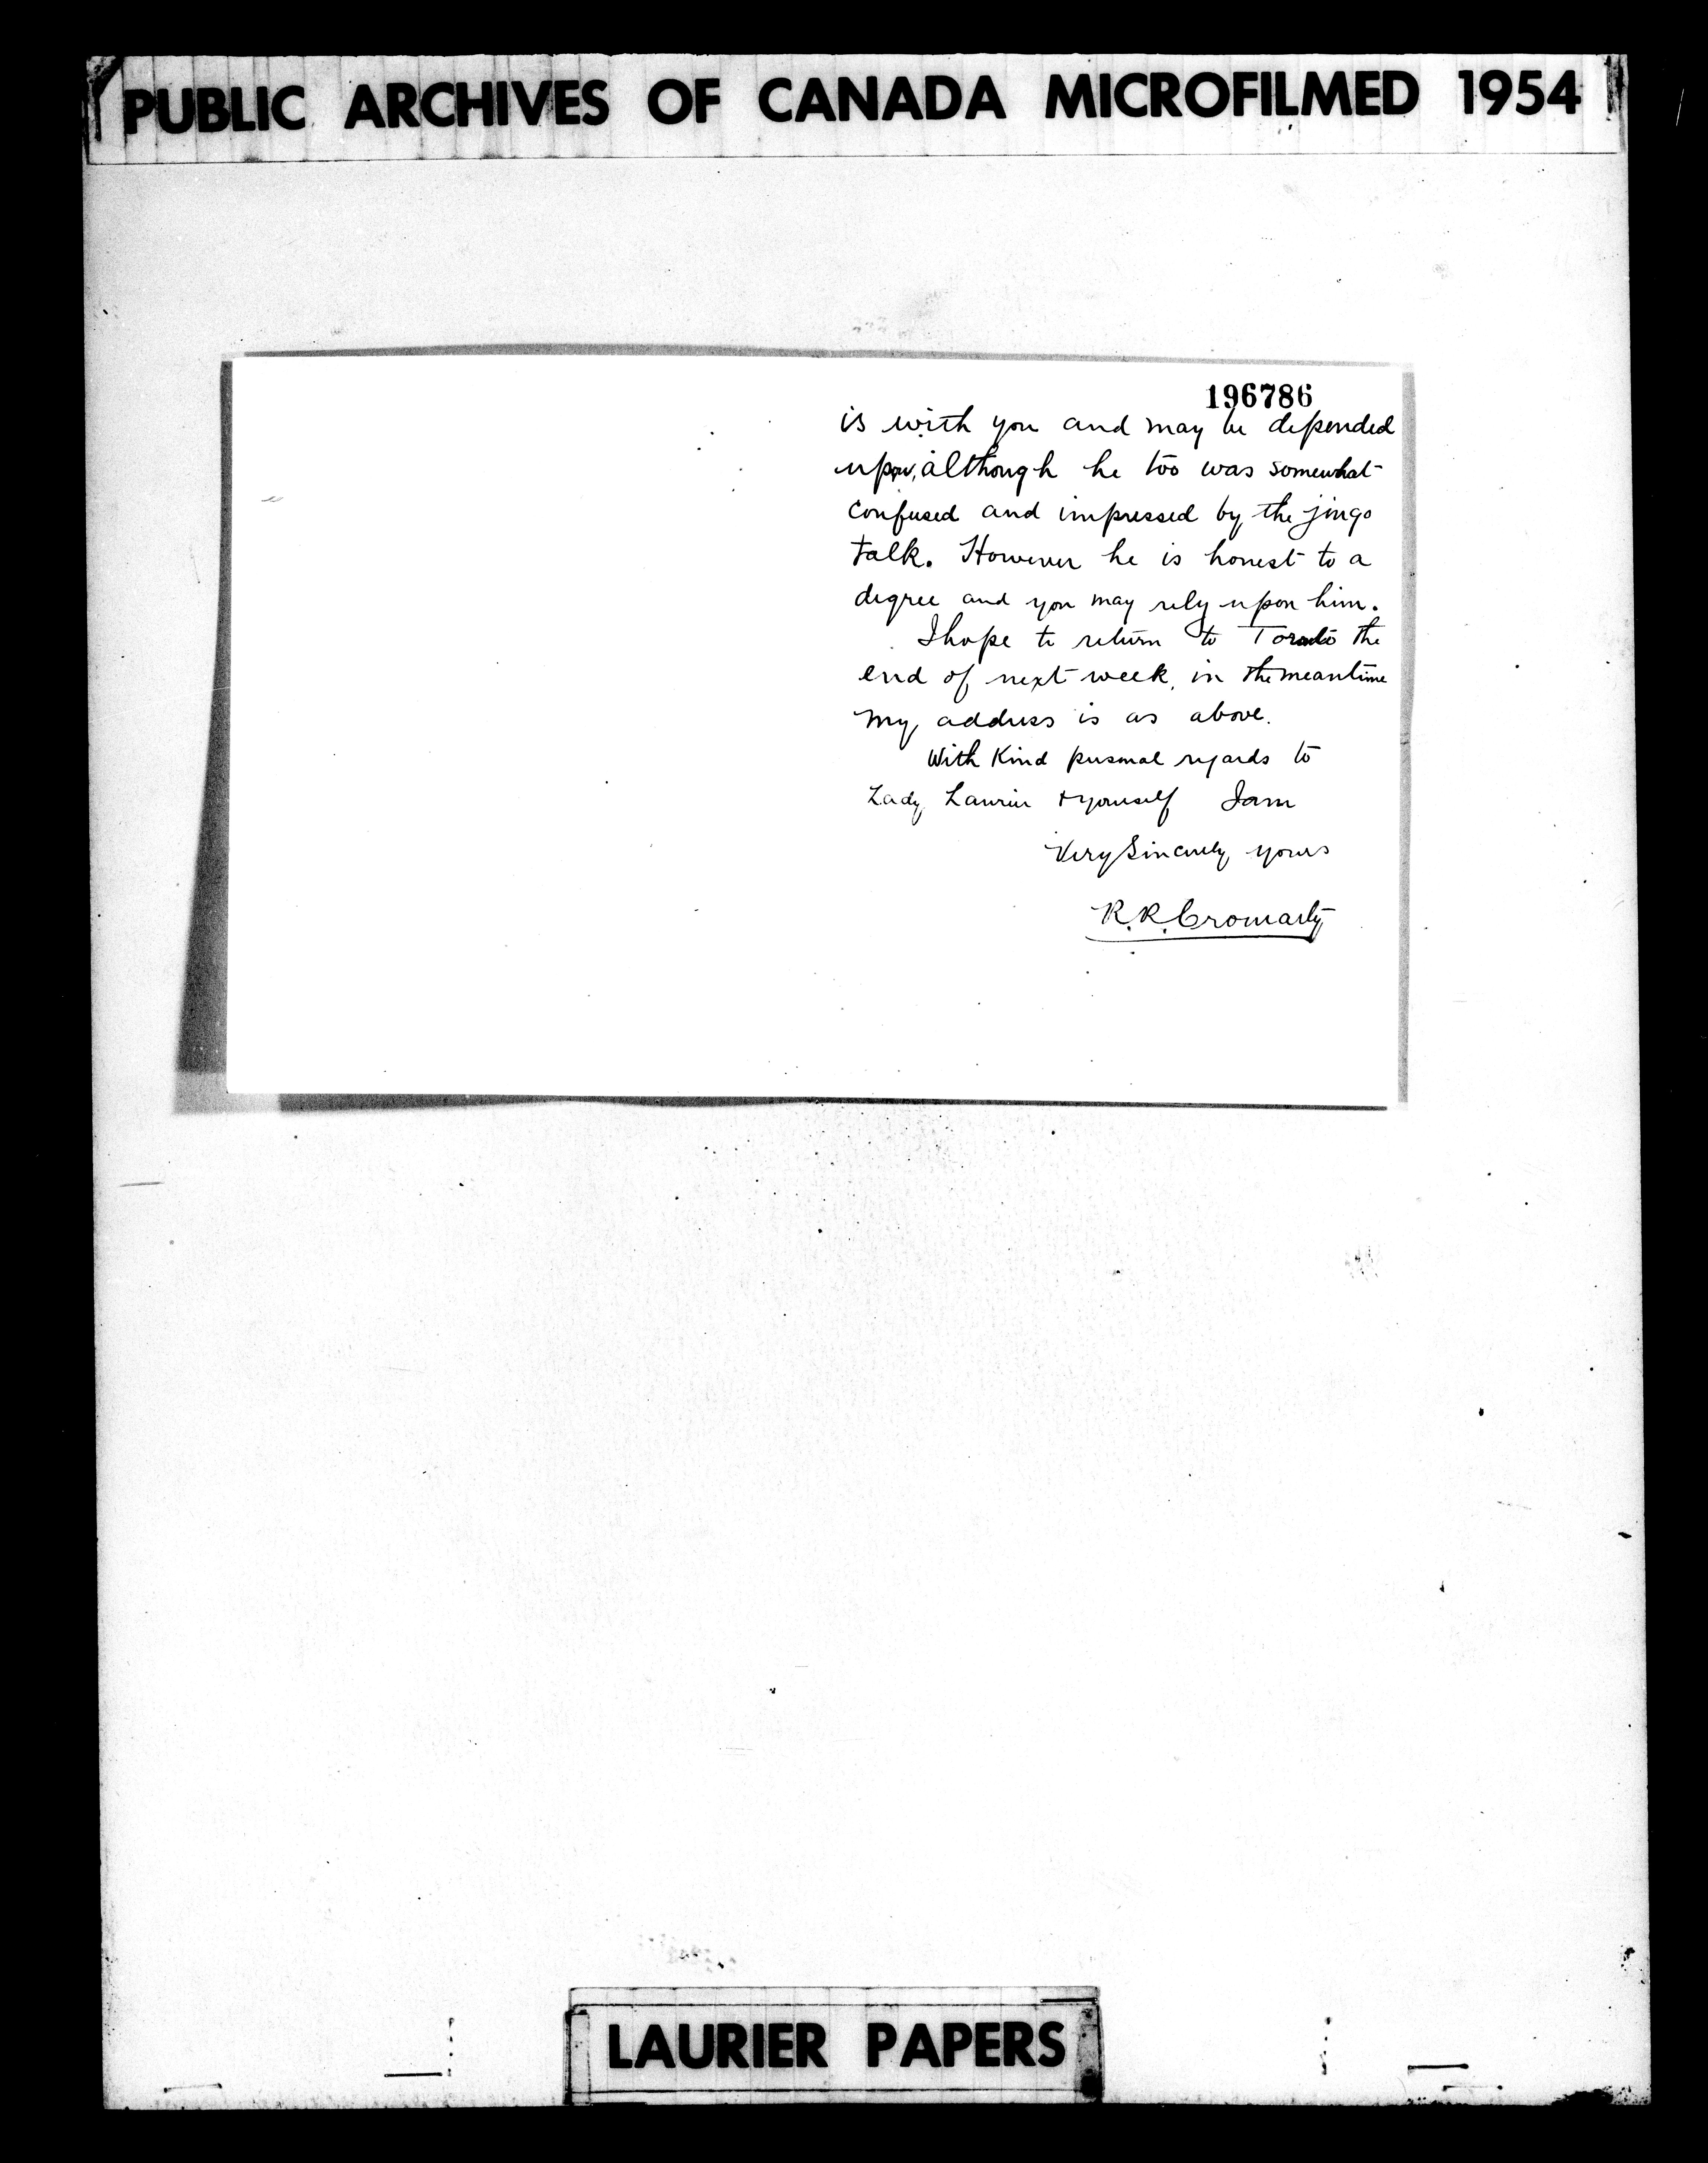 PUBLIC ARCHIVES OF CANADA MICROFILMED 1954
196786
is with you and may be depended
upon, although he too was somewhat
confused and impressed by the jingo
talk. However he is honest to a
degree and you may rely upon him.
I hope to return to Toronto the
end of next week, in the meantime
my address is as above.
With Kind personal regards to
Lady Laurier & yourself I am
Very Sincerely yours
R. R. Cromarty
LAURIER PAPERS